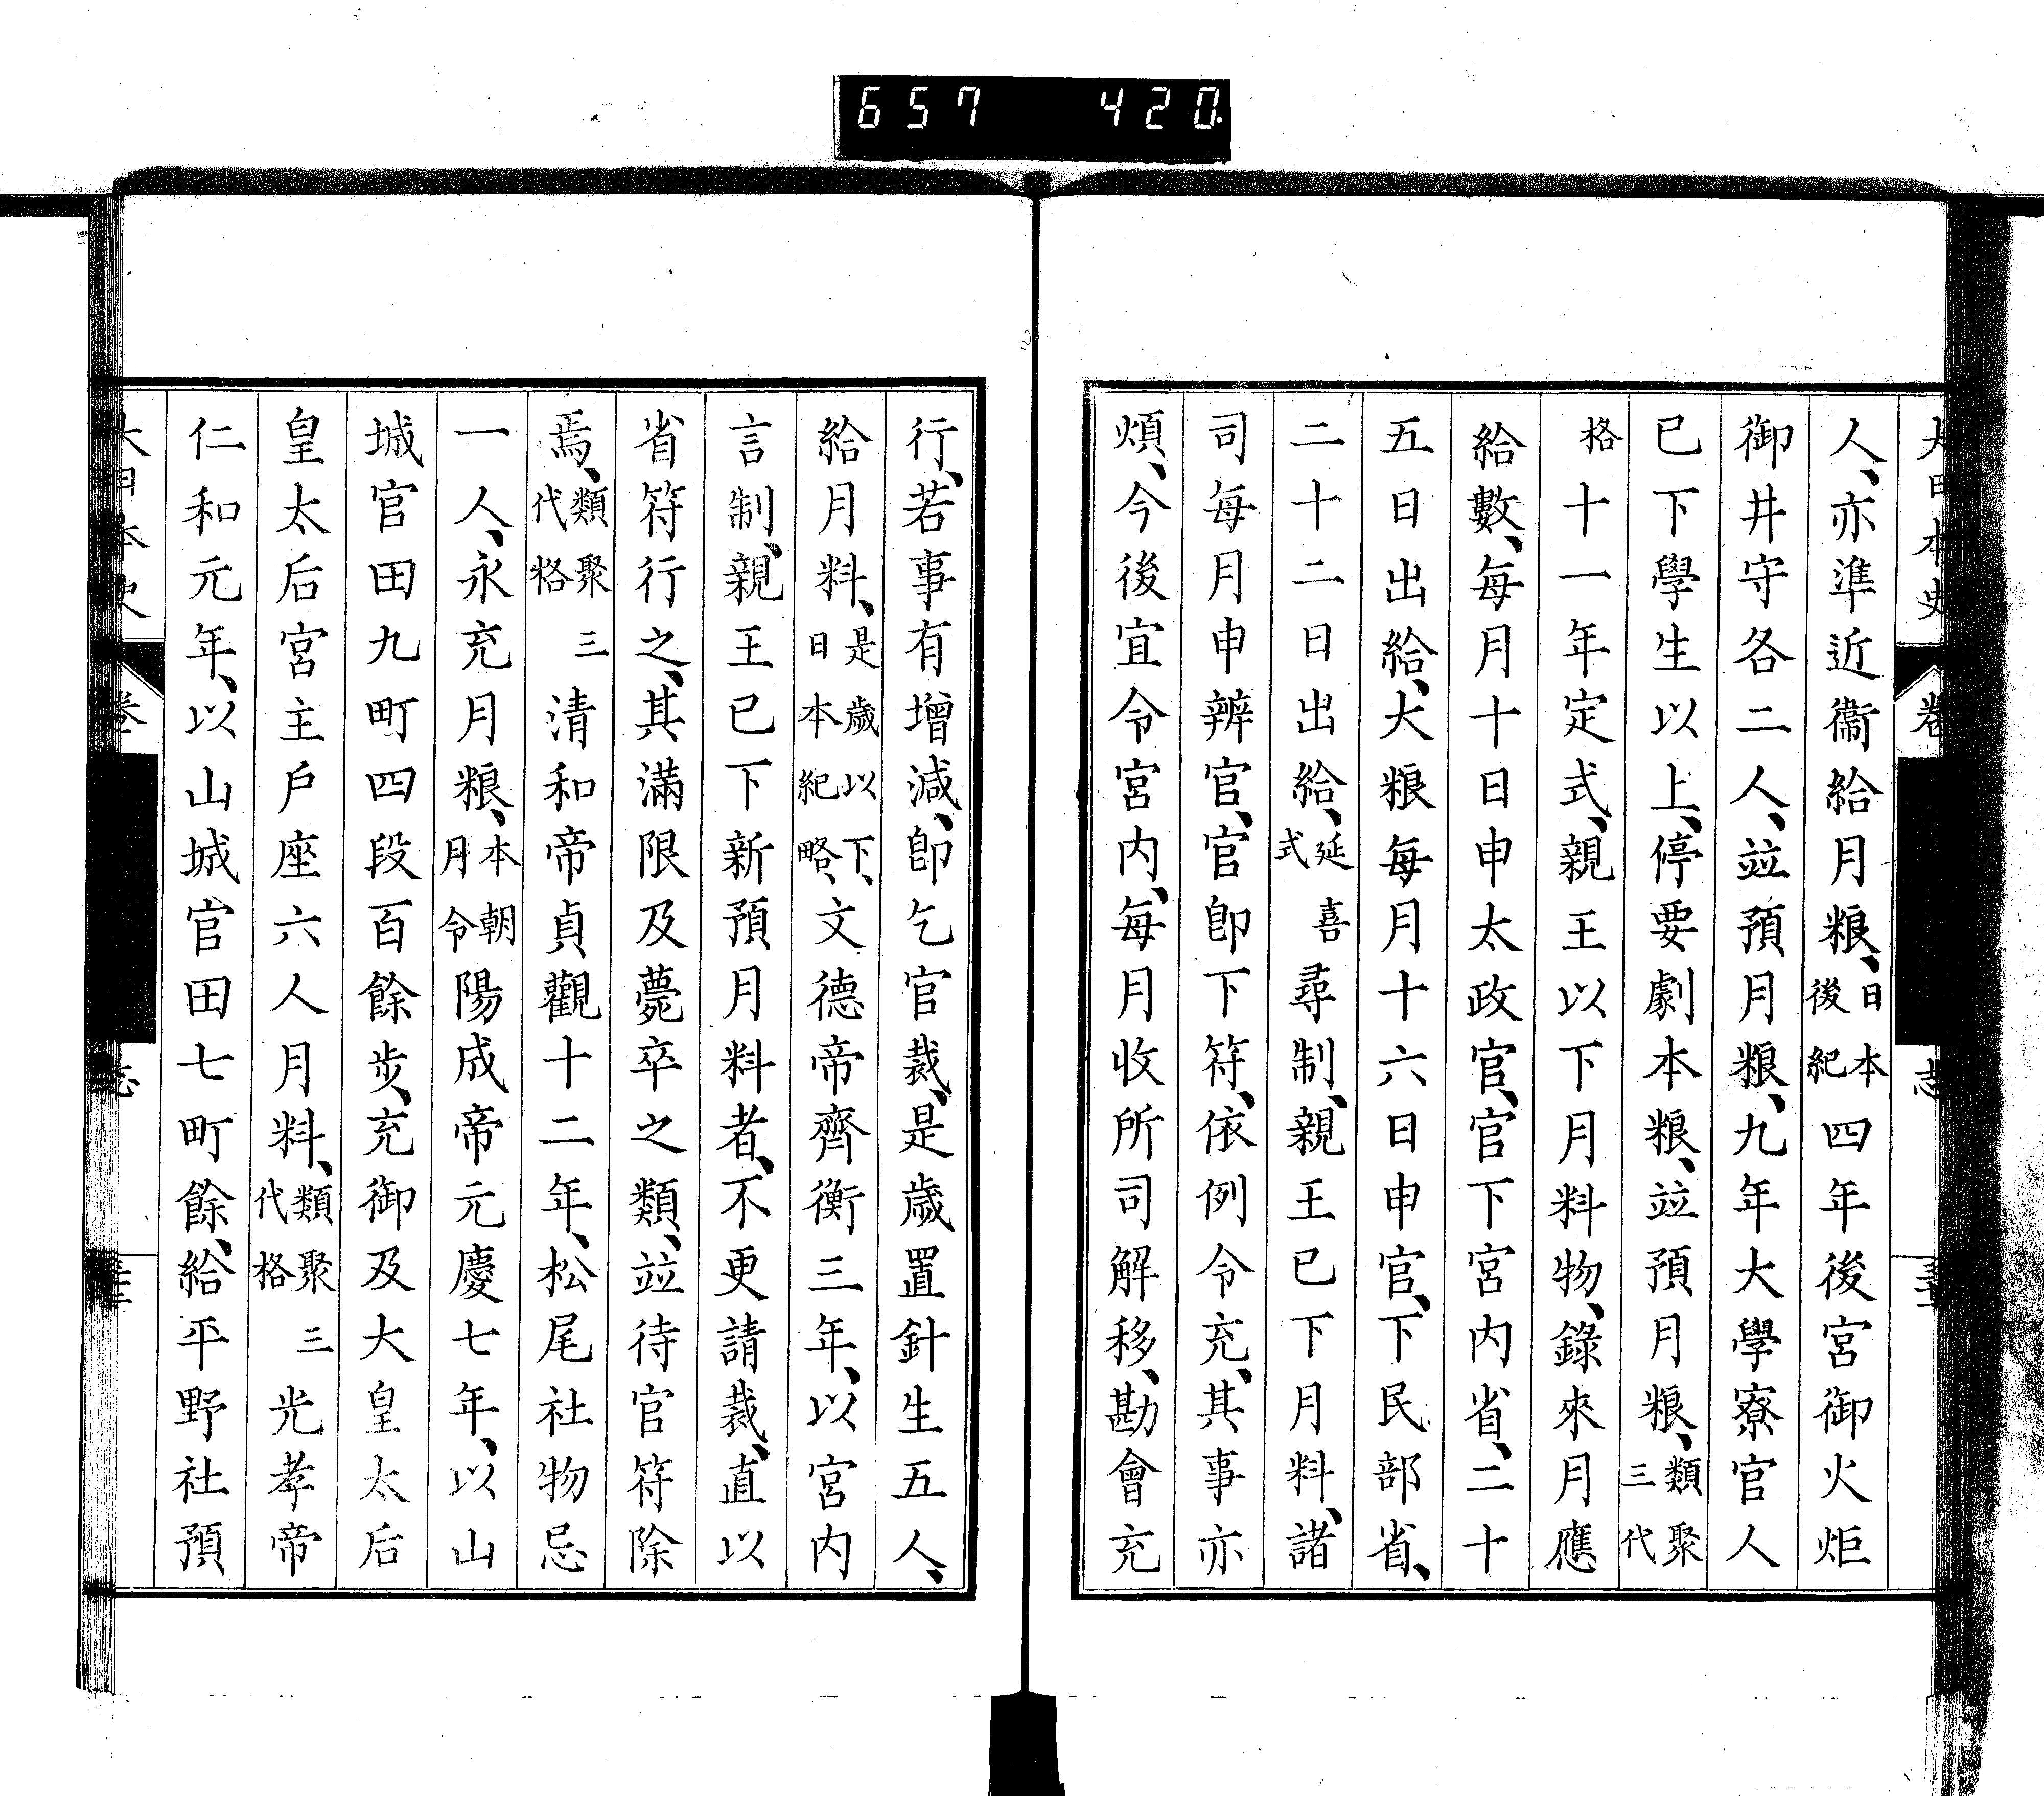 657 420
大日本史 卷 志
人、亦準近衞給月粮、日本後紀四年後宮御火炬
御井守各二人、竝預月粮、九年大學寮官人
已下學生以上、停要劇本粮、竝預月粮、類聚三代
格十一年定式、親王以下月料物、錄來月應
給數、每月十日申太政官、官下宮内省、二十
五日出給、大粮每月十六日申官、下民部省、
二十二日出給、延喜式尋制、親王已下月料、諸
司每月申辨官、官卽下符、依例令充、其事亦
煩、今後宜令宮内、每月收所司解移、勘會充
行、若事有增減、卽乞官裁、是歲置針生五人、
給月料、是歲以下、日本紀略、文德帝齊衡三年、以宮内
言制、親王已下新預月料者、不更請裁、直以
省符行之、其滿限及薨卒之類、竝待官符除
焉、類聚三代格清和帝貞觀十二年、松尾社物忌
一人、永充月粮、本朝月令陽成帝元慶七年、以山
城官田九町四段百餘步、充御及大皇太后
皇太后宮主戶座六人月料、類聚三代格光孝帝
仁和元年、以山城官田七町餘、給平野社預
大日本史 卷 志